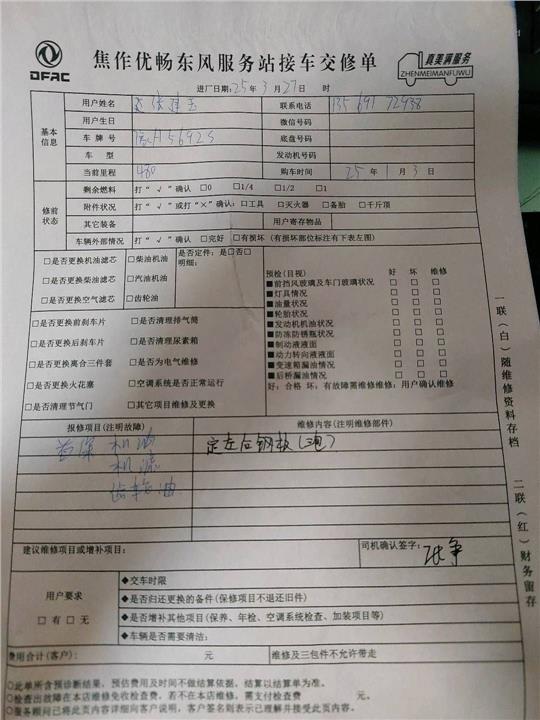 DFAC
焦作优畅东风服务站接车交修单
真美满服务
ZHENMEIMANFUWU
进厂日期:25年3月27日 时
基本信息
用户姓名 联系电话 13569172938
用户生日 微信号码
车牌号 底盘号码
车型 发动机号码
当前里程 480 购车时间 25年1月3日
修前状态
剩余燃料 打“√”确认 □0 □1/4 □1/2 □1
附件状况 打“√”或打“×”确认:□工具 □灭火器 □备胎 □千斤顶
其它装备 用户寄存物品
车辆外部情况 打“√”确认 □完好 □有损坏(有损部位标注有下表左图)
□是否更换机油滤芯 □柴油机油 是否定件:是□否□
明细:
□是否更换柴油滤芯 □汽油机油
□是否更换空气滤芯 □齿轮油
预检(目视) 好 坏 维修
■前挡风玻璃及车门玻璃状况 □ □ □
■灯具情况 □ □ □
■油量状况 □ □ □
■轮胎状况 □ □ □
■发动机机油状况 □ □ □
■防冻防锈瓶状况 □ □ □
■制动液液面 □ □ □
■动力转向液液面 □ □ □
■变速箱漏油情况 □ □ □
■后桥漏油情况 □ □ □
好:合格 坏:有故障需维修维修:用户确认维修
□是否更换前刹车片 □是否清理排气筒
□是否更换后刹车片 □是否清理尿素箱
□是否更换离合三件套 □是否为电气维修
□是否更换火花塞 □空调系统是否正常运行
□是否清理节气门 □其它项目维修及更换
报修项目(注明故障) 维修内容(注明维修部件)
首保 机油 定左后钢板
机滤
齿轮油
建议维修项目或增补项目: 司机确认签字:
用户要求
□有 □无
◆交车时限
◆是否归还更换的备件(保修项目不退还旧件)
◆是否增补其他项目(保养、年检、空调系统检查、加装项目等)
◆车辆是否需要清洁:
费用合计(客户): 元 维修及三包件不允许带走
○此单所含预诊断结果,预估费用及时间不做结算依据,结算以结算单为准。
○检查出故障在本店维修免收检查费,若不在本店维修,需支付检查费 元。
○服务顾问已将此页内容详细向客户说明,客户签名则表示已理解并接受此页内容。
一联(白)随维修资料存档
二联(红)财务留存